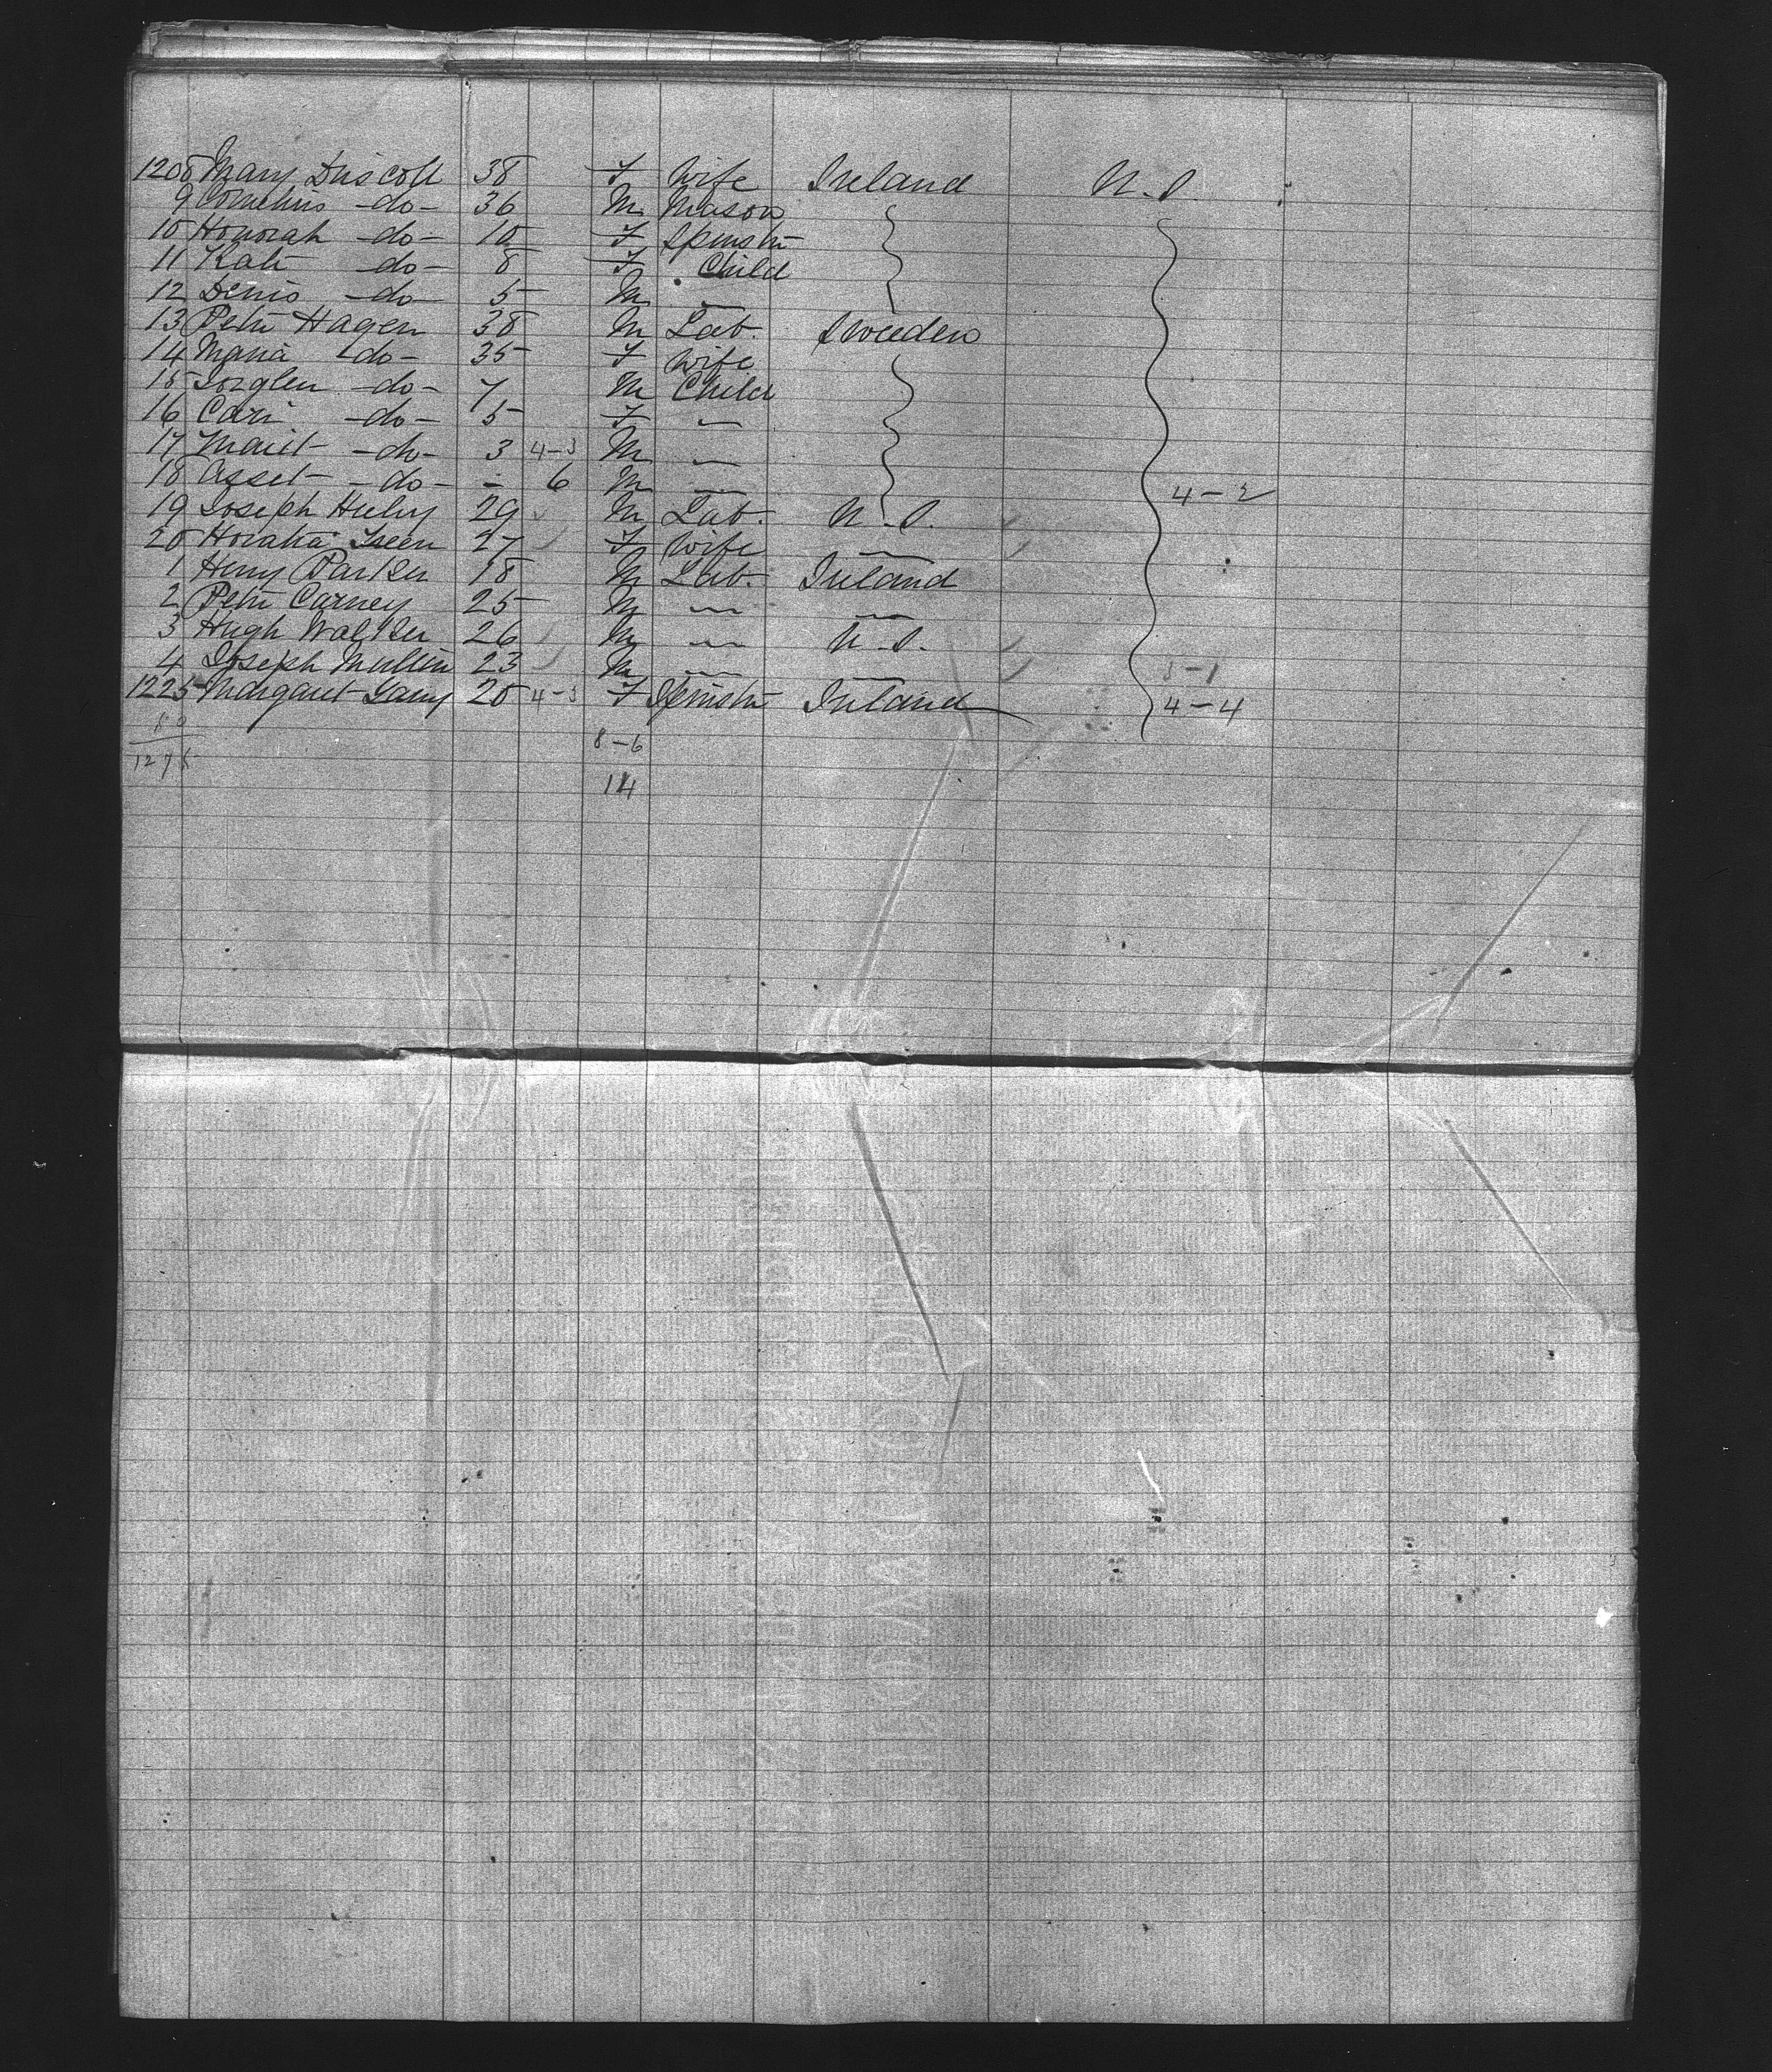 1208 Mary Driscoll 38 F Wife Ireland U.S.
9 Cornelius -do- 36 M Mason
10 Honorah -do- 10 F Spinstr
11 Kate -do- 8 F Child
12 Denis -do- 5 M —
13 Petr Hagen 38 M Lab. Sweeden
14 Maria -do- 35 F Wife
15 -do- 7 M Child
16 Cari -do- 5 F —
17 Marit -do- 3 4-3 M —
18 Asset -do- - 6 M — 4-2
19 Joseph 29 M Lab. U.S.
20 27 F Wife —
1 Henry Parker 18 M Lab. Ireland
2 Petr Carney 25 M — —
3 Hugh Walker 26 M — U.S.
4 Joseph Mullin 23 M — — 3-1
1225 Margaret 20 4-3 F Spinstr Ireland 4-4
50 8-6
1275
14